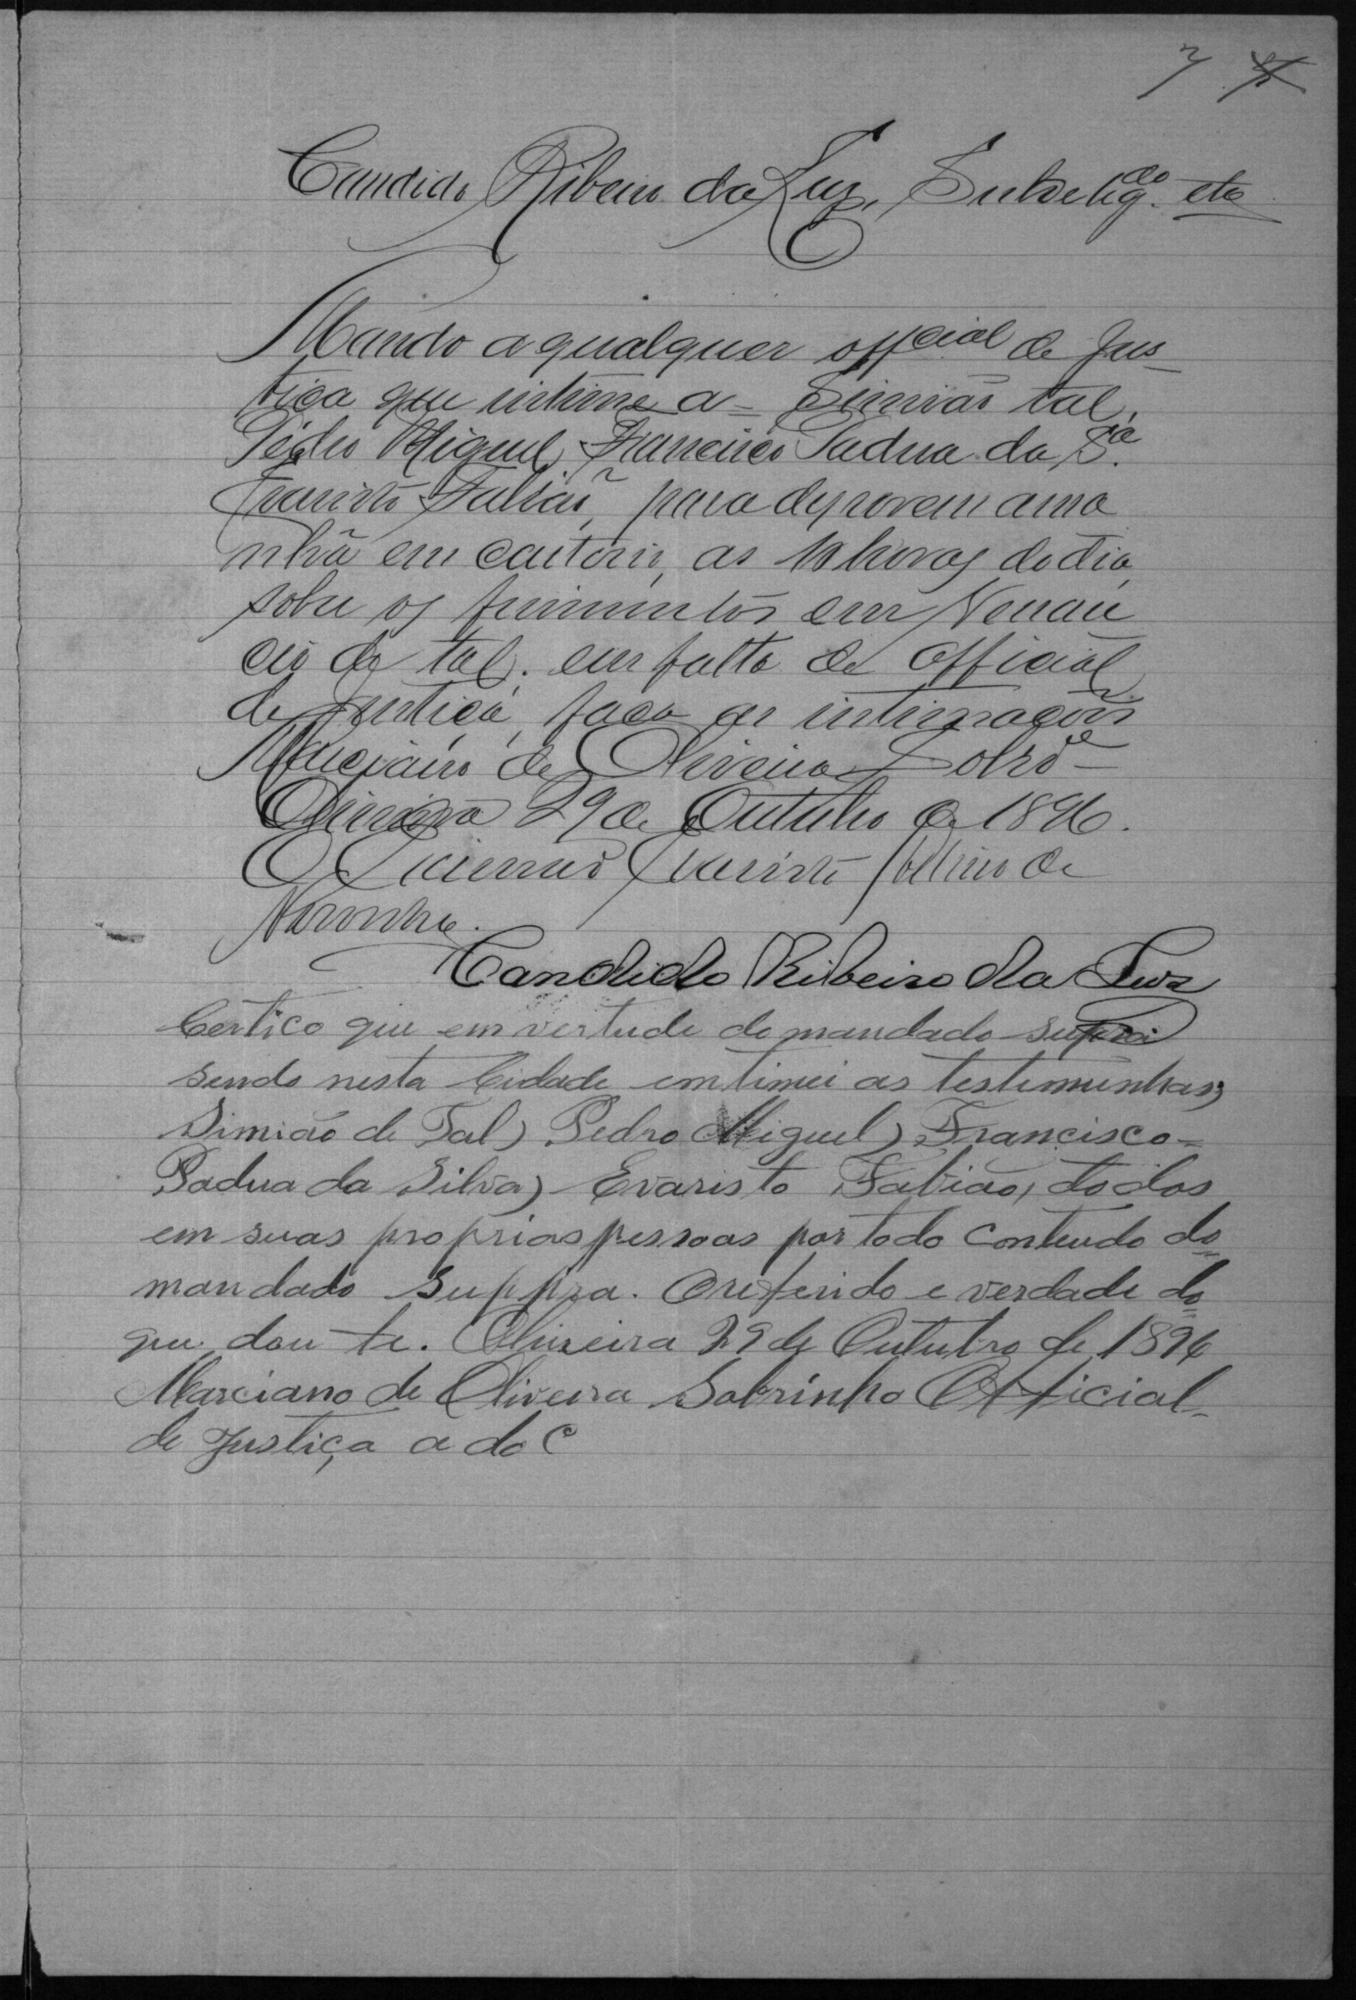 7
Candido Ribeiro da Luz, Subdelgdo. etc
Mando a qualquer official de Jus-
tiça que intime a = Simião tal,
Pedro Miguel, Francisco Padua da Sa.
Evaristo Fabião, para deporem ama
nhã em cartorio, as 10 horas do dia,
sobre os ferimentos em Venan
cio de tal. em falta de official
de justiça, faça as intimações
Marciano de Oliveira Sobro-
Oliveira 29 de Outubro de 1896.
O Escrivão Evaristo de
Noronha.
Candido Ribeiro da Luz
Certico que em vertude do mandado supra
sendo nesta Cidade emtimei as testemunhas,
Simião de Tal) Pedro Miguel) Francisco=
Padua da Silva) Evaristo Fabião, todos
em suas proprias pessoas por todo conteudo do
mandado suppra. O referido e verdade do
que dou fe. Oliveira 29 de Outubro de 1896
Marciano de Oliveira Sobrinho Official-
de Justiça a do C